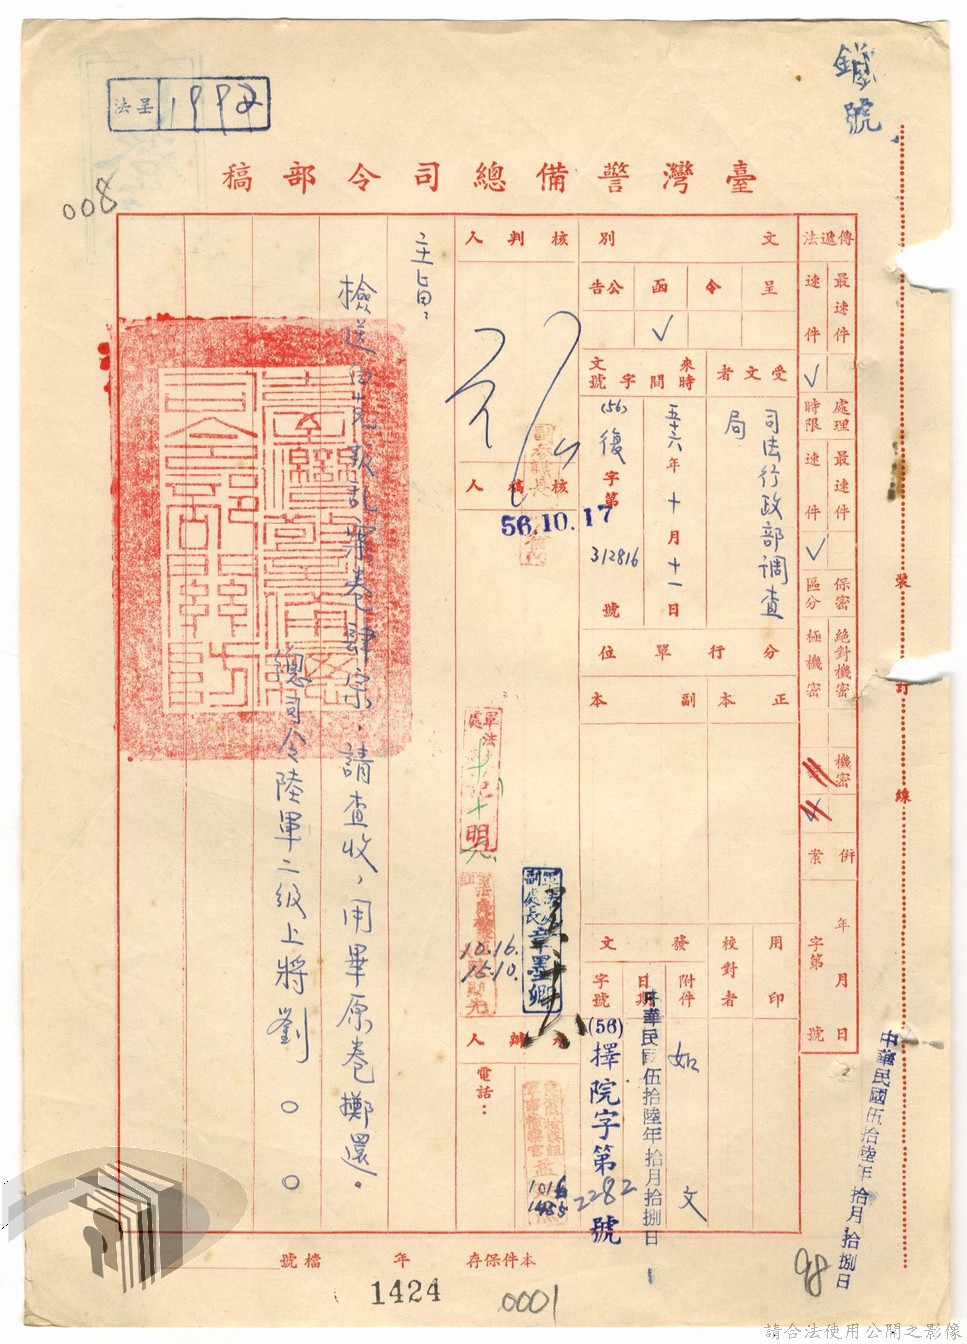 鎖號
法呈 1992
008
臺灣警備總司令部稿
傳遞法
最速件
速件
✓
處理時限
最速件
速件
✓
保密區分
絕對機密
極機密
機密
✓
併案
年 月 日
字第 號
文別
呈
令
函
公告
✓
受文者
司法行政部調查局
來文時間字號
五十六年十月十一日
(56)復字第312816號
分行單位
正本
副本
用印
校對者
發文
附件
日期
字號
如文
中華民國伍拾陸年拾月拾捌日
(56)擇院字第2282號
核判人
核稿人
56.10.17
副處長章墨卿
10.16.
15.10.
承辦人
電話：
主旨：
檢送
叛亂案卷肆宗，請查收，用畢原卷擲還。
總司令陸軍二級上將劉○○
裝
訂
線
中華民國伍拾陸年拾月拾捌日
98
本件保存 年 檔號
1424
0001
請合法使用公開之影像